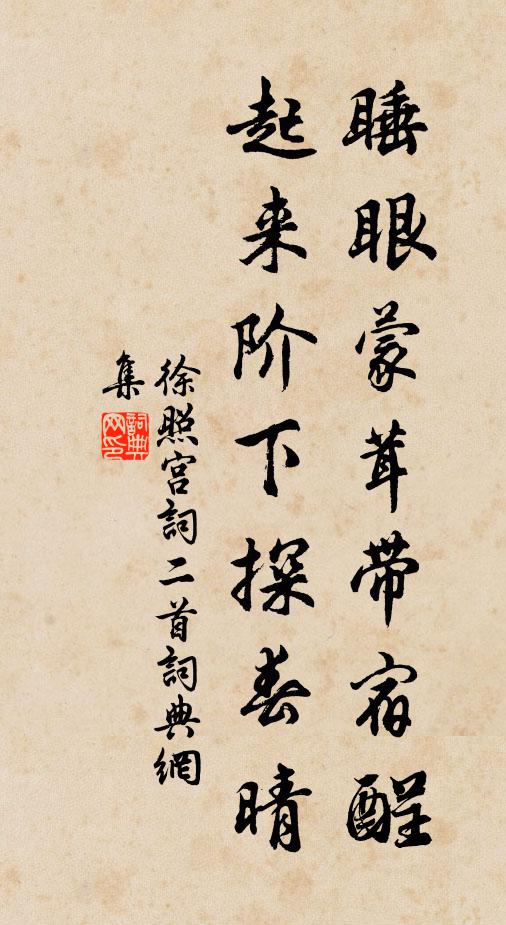 睡眼蒙茸带宿酲
起来阶下探春晴
徐照宫詞二首詞典網
集
詞典
网印